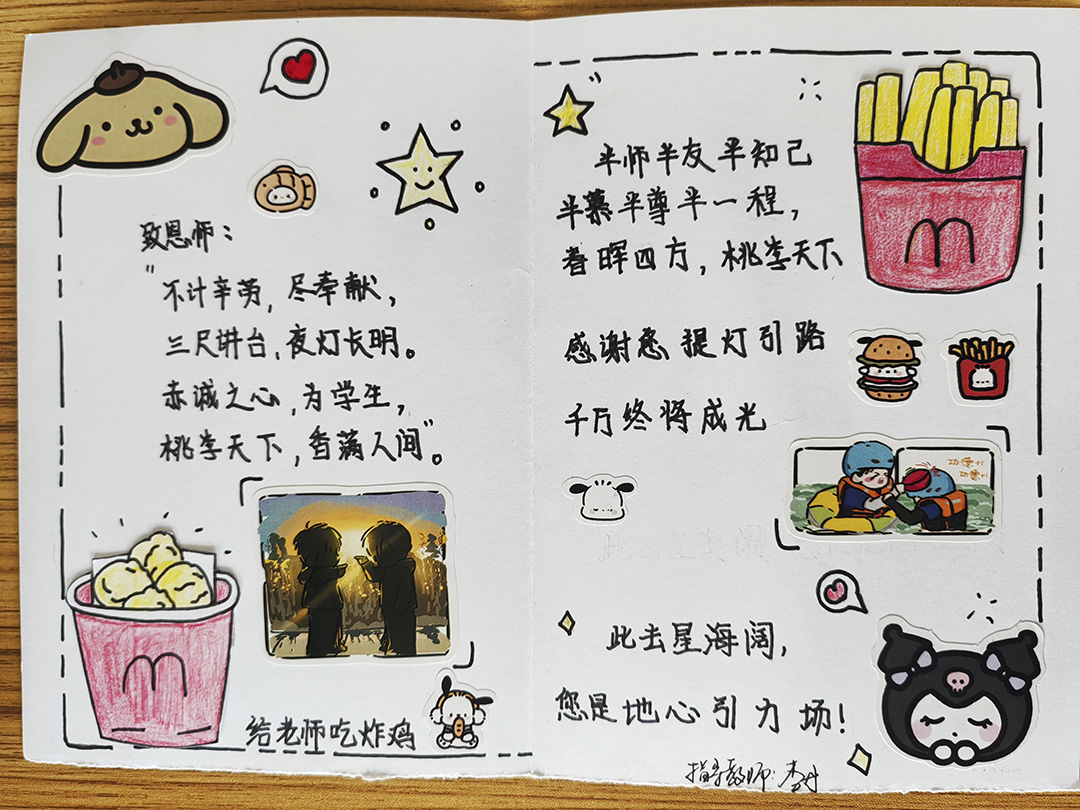 致恩师：
"不计辛劳，尽奉献，
三尺讲台，夜灯长明。
赤诚之心，为学生，
桃李天下，香满人间"。
给老师吃炸鸡
半师半友半知己
半慕半尊半一程，
春晖四方，桃李天下
感谢您提灯引路
千万终将成光
功德+1
功德+1
此去星海阔，
您是地心引力场！
指导教师：李丹